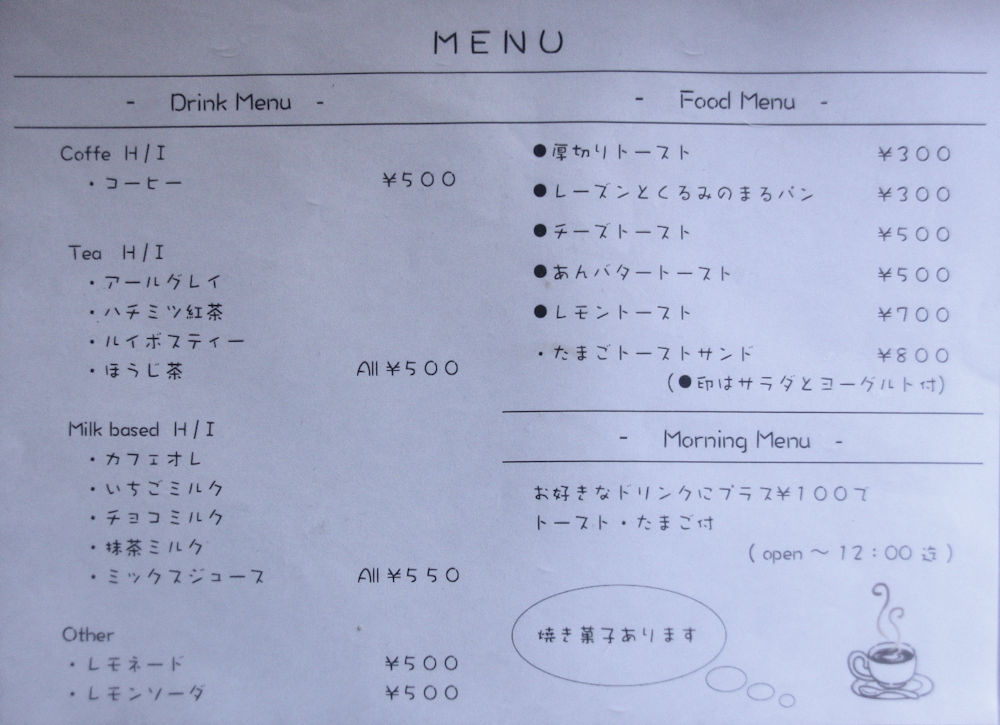 MENU
- Drink Menu -
Coffe H/I
・コーヒー ¥500
Tea H/I
・アールグレイ
・ハチミツ紅茶
・ルイボスティー
・ほうじ茶 All ¥500
Milk based H/I
・カフェオレ
・いちごミルク
・チョコミルク
・抹茶ミルク
・ミックスジュース All ¥550
Other
・レモネード ¥500
・レモンソーダ ¥500
- Food Menu -
●厚切りトースト ¥300
●レーズンとくるみのまるパン ¥300
●チーズトースト ¥500
●あんバタートースト ¥500
●レモントースト ¥700
・たまごトーストサンド ¥800
(●印はサラダとヨーグルト付)
- Morning Menu -
お好きなドリンクにプラス¥100で
トースト・たまご付
(open ～ 12：00 迄)
焼き菓子あります